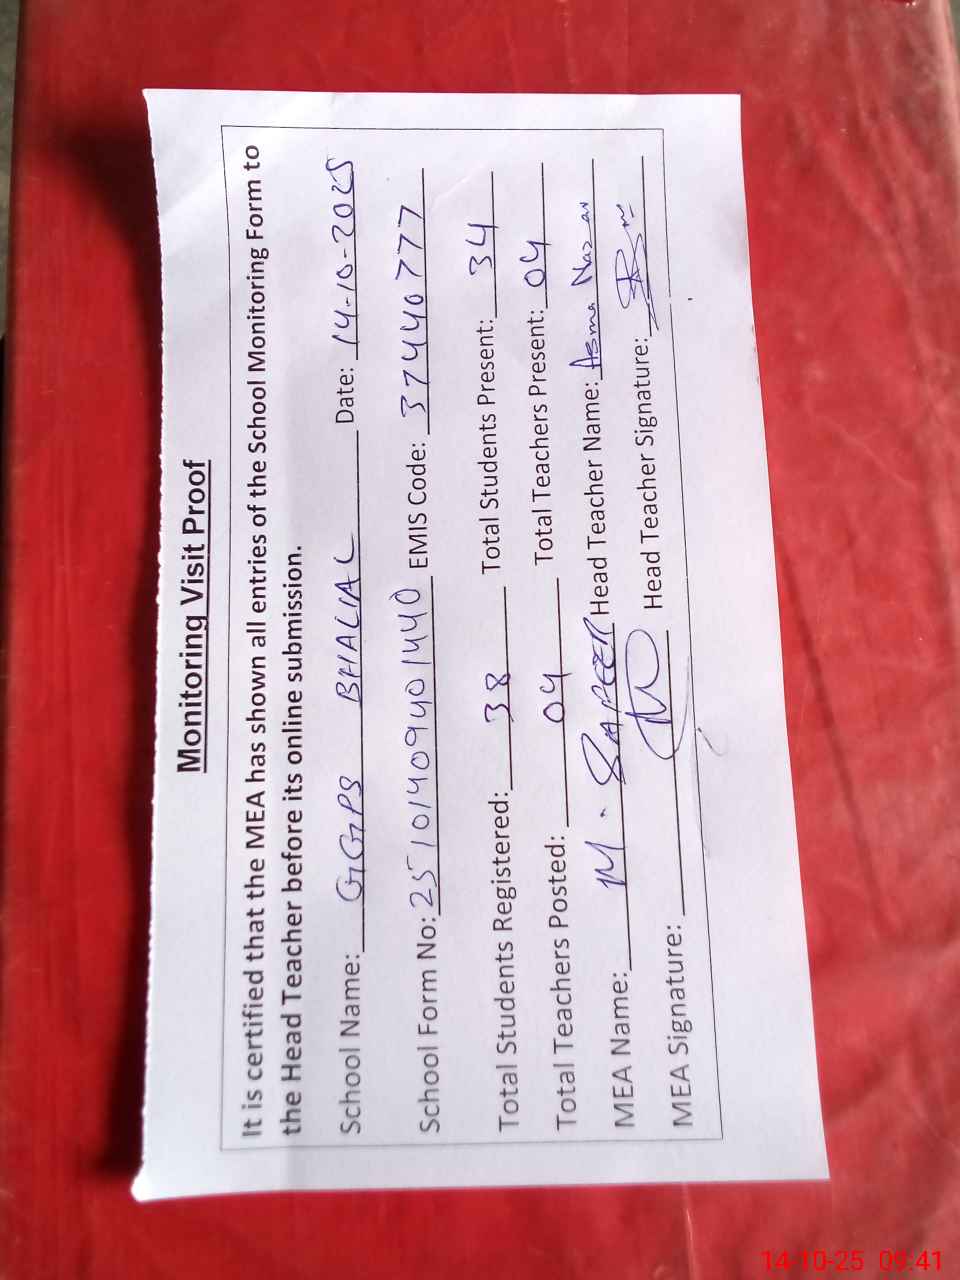 Monitoring Visit Proof
It is certified that the MEA has shown all entries of the School Monitoring Form to
the Head Teacher before its online submission.
School Name: GGPS BHALIAL Date: 14-10-2025
School Form No: 25101409401440 EMIS Code: 37440777
Total Students Registered: 38 Total Students Present: 34
Total Teachers Posted: 04 Total Teachers Present: 04
MEA Name: M. SAFEER Head Teacher Name: Asma Naz
MEA Signature: Head Teacher Signature:
14-10-25 09:41